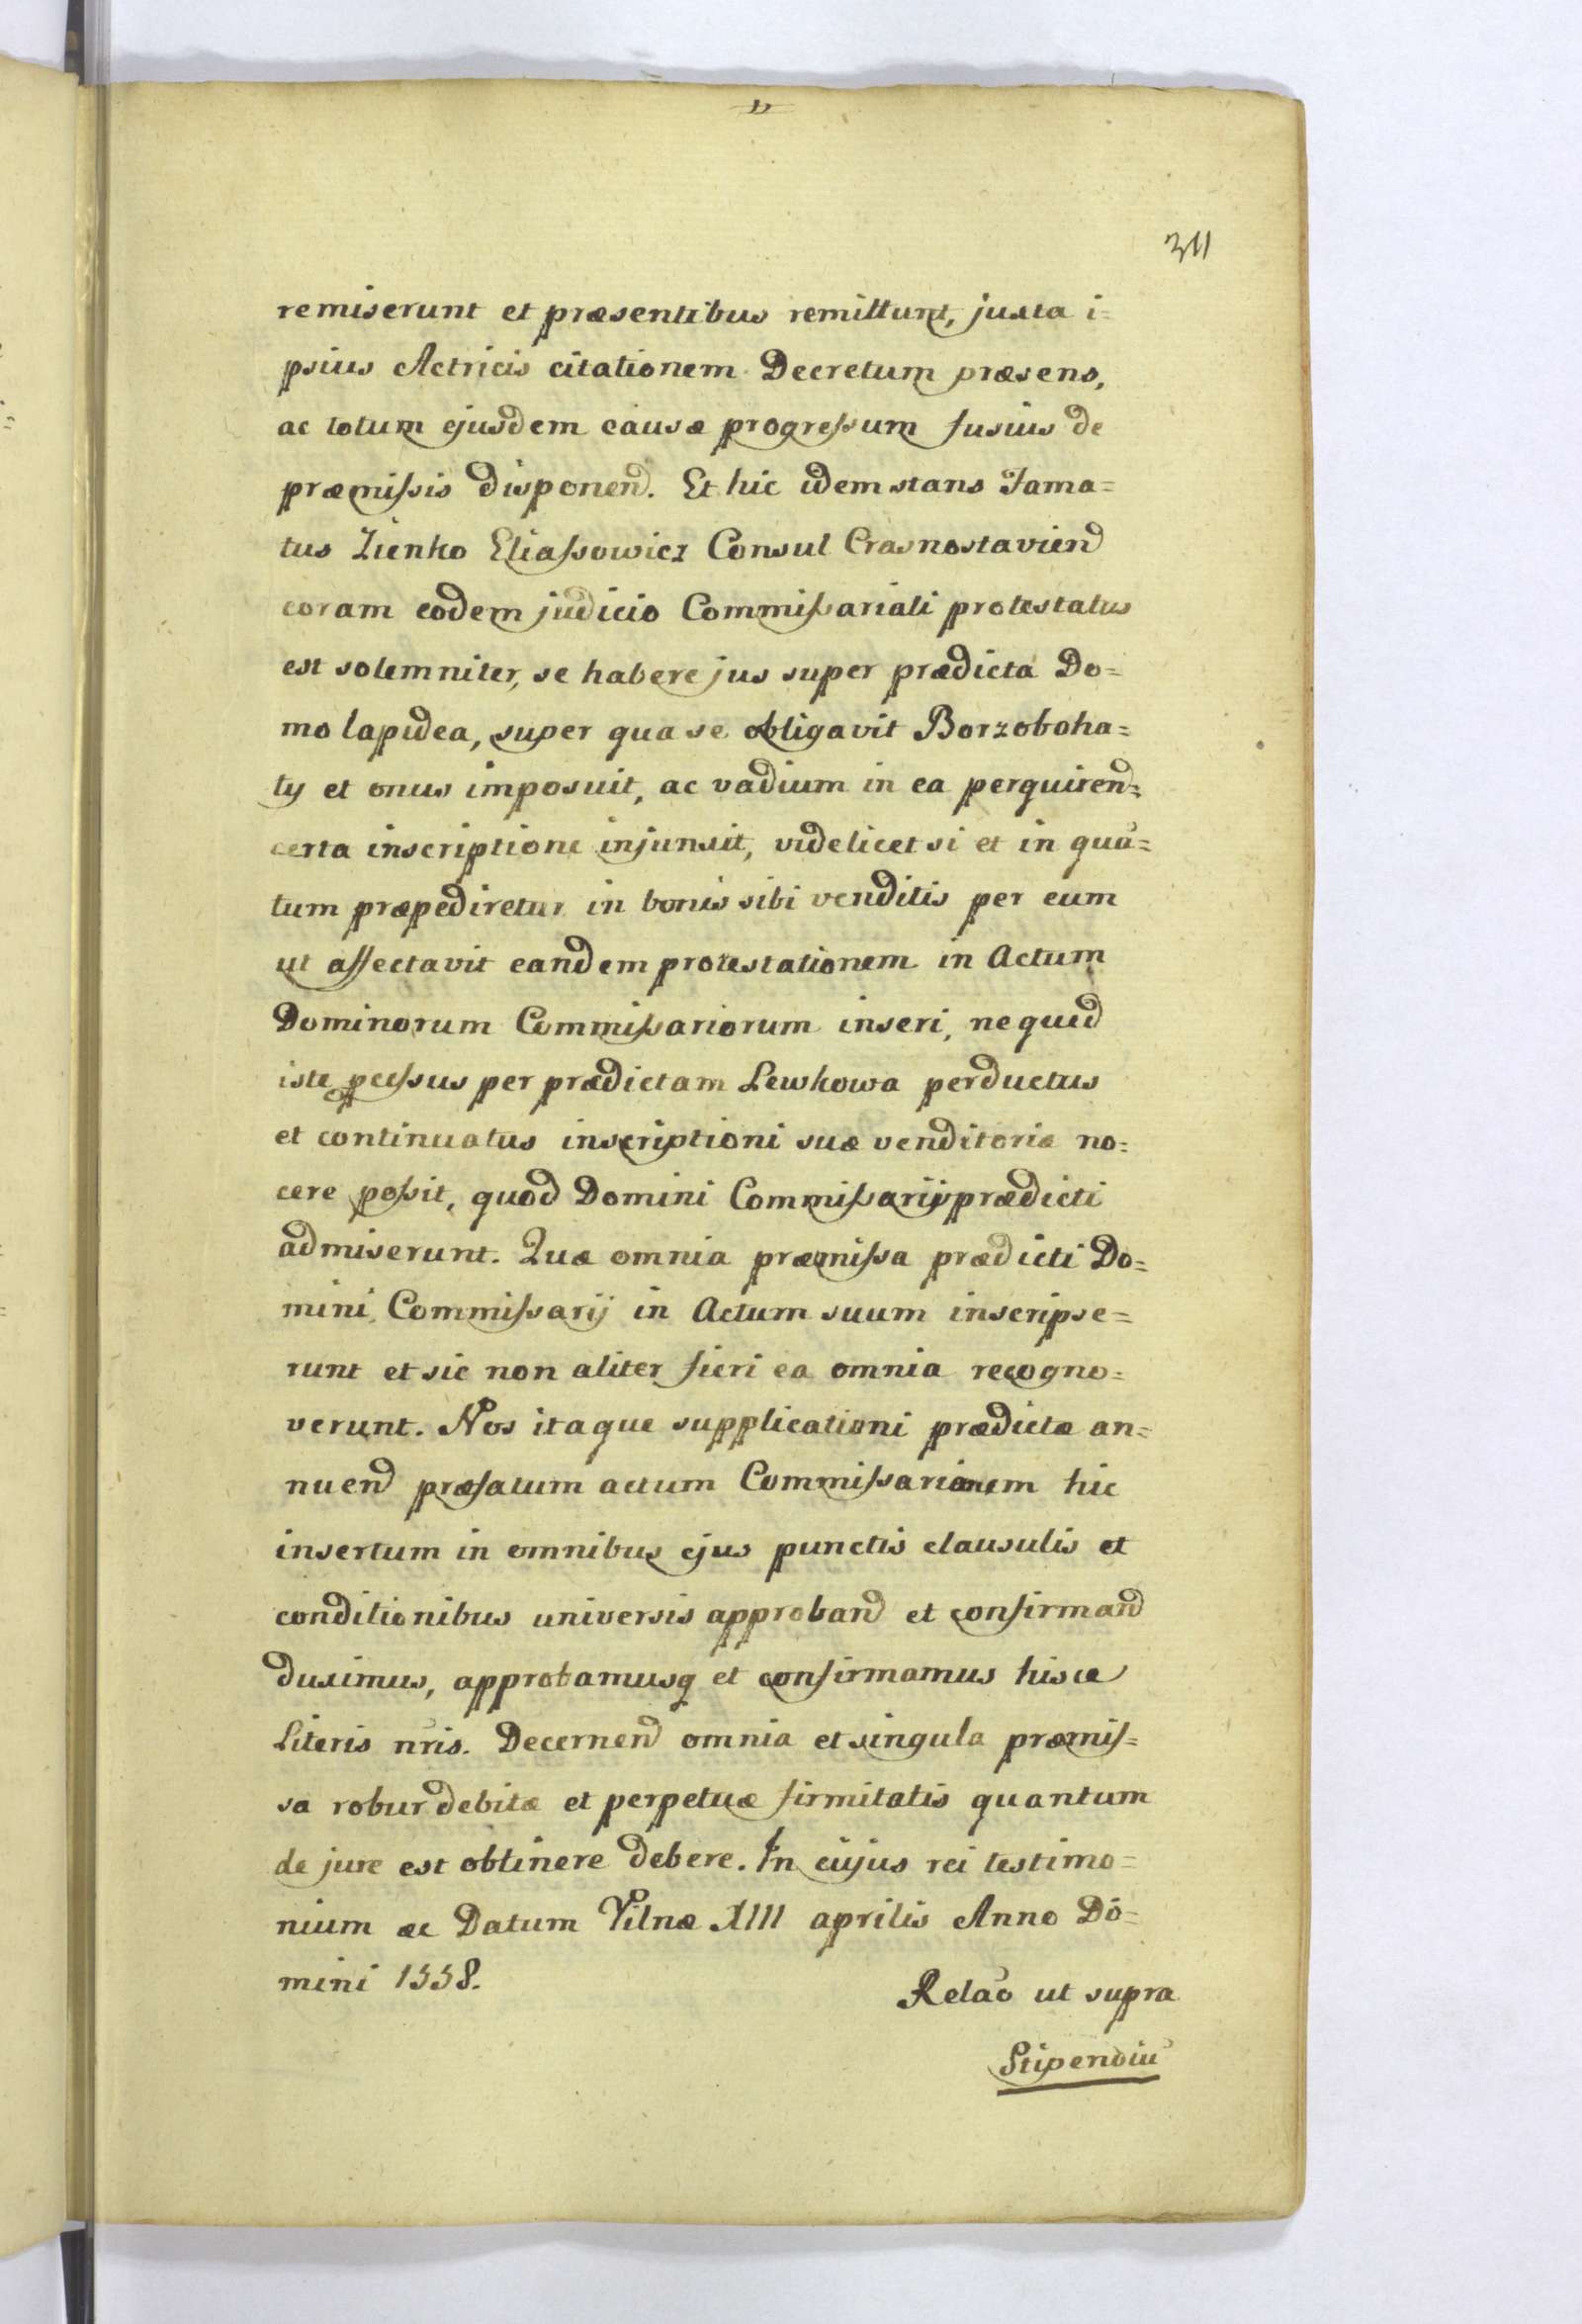 311
remiserunt et præsentibus remittunt, juxta i=
psius Actricis citationem Decretum præsens,
ac totum ejusdem causæ progressum fusius de
præmissis disponend. Et hic idem stans Fama=
tus Zienko Eliassowicz Consul Crasnostavien
coram eodem judicio Commissariali protestatus
est solemniter, se habere jus super prædicta Do=
mo lapidea, super qua se obligavit Borzoboha=
ty et onus imposuit, ac vadium in ea perquiren=
certa inscriptione injunxit, videlicet si et in quā=
tum præpediretur in bonis sibi venditis per eum
ut affectavit eandem protestationem in Actum
Dominorum Commissariorum inseri, ne quid
iste pcessus per prædictam Lewkowa perductus
et continuatus inscriptioni suæ venditoriæ no=
cere possit, quod Domini Commissarij prædicti
admiserunt. Quæ omnia præmissa prædicti Do=
mini Commissarij in Actum suum inscripse=
runt et sic non aliter fieri ea omnia recogno=
verunt. Nos itaque supplicationi prædictæ an=
nuend præfatum actum Commissarionem hic
insertum in omnibus ejus punctis clausulis et
conditionibus universis approband et confirmand
duximus, approbamusq et confirmamus hisce
Literis nris. Decernend omnia et singula præmis=
sa robur debitæ et perpetuæ firmitatis quantum
de jure est obtinere debere. In cujus rei testimo=
nium &c Datum Vilnæ XIII aprilis Anno Do=
mini 1558.
Relāo ut supra
Stipendiū